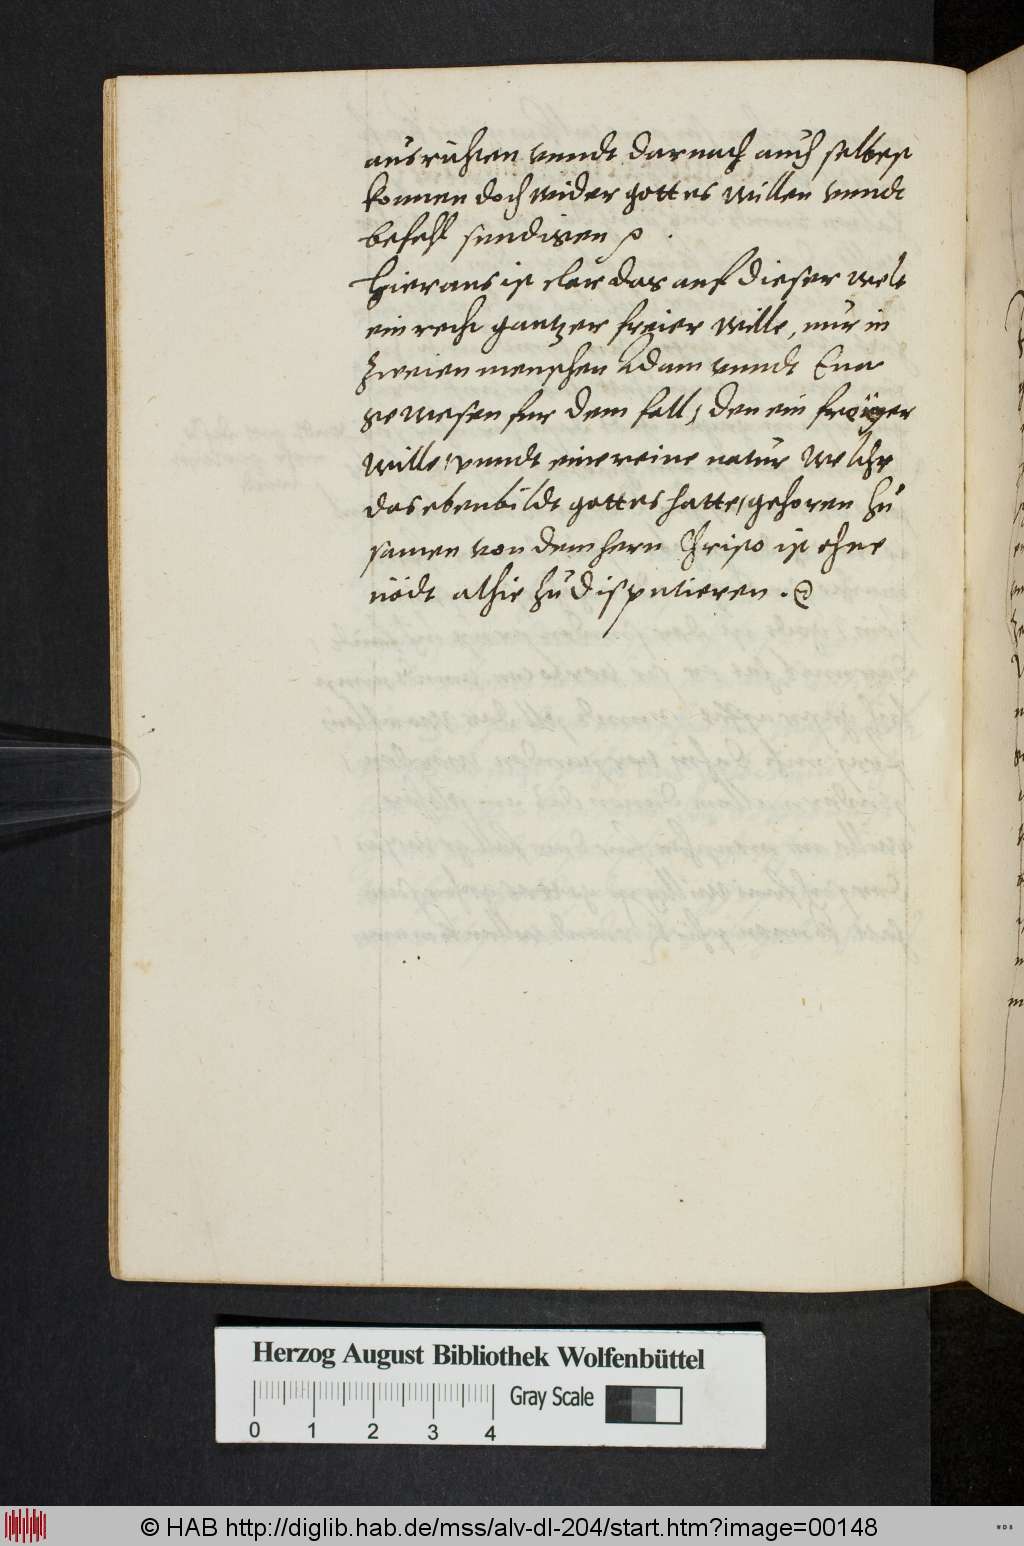 ausrichten vnndt darnach auch selbest
konnen doch wider gottes willen vnndt
befehl sundigen
Hieraus ist clar das auf dieser welt
ein recht gantzer freier wille, nur in
zweien menschen Adam vnndt Eua
gewesen fur dem fall, den ein freyer
wille, vnndt eine reine natur welche
das ebenbildt gottes hatte, gehoren zu
samen von dem hern Christo ist ohne
nödt alhie zu disputieren.
Herzog August Bibliothek Wolfenbüttel
Gray Scale
0 1 2 3 4
© HAB http://diglib.hab.de/mss/alv-dl-204/start.htm?image=00148